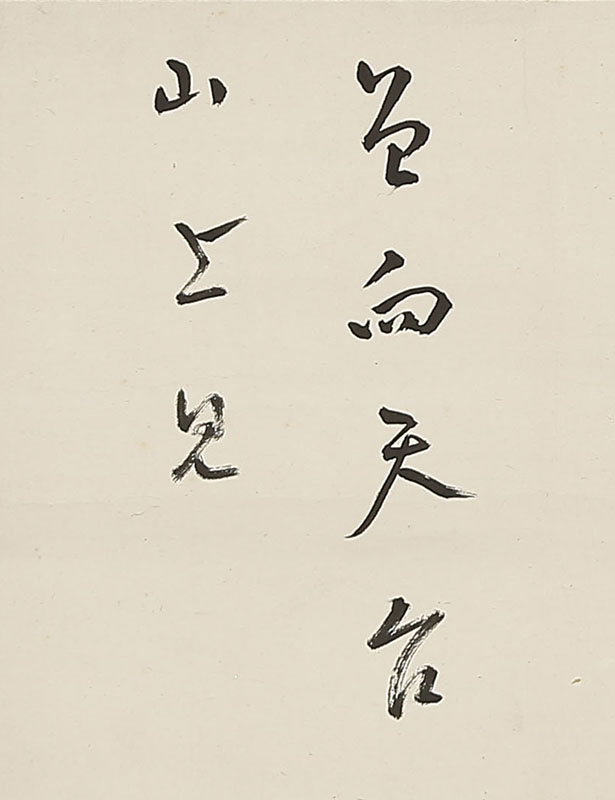 曾向天台
山上見